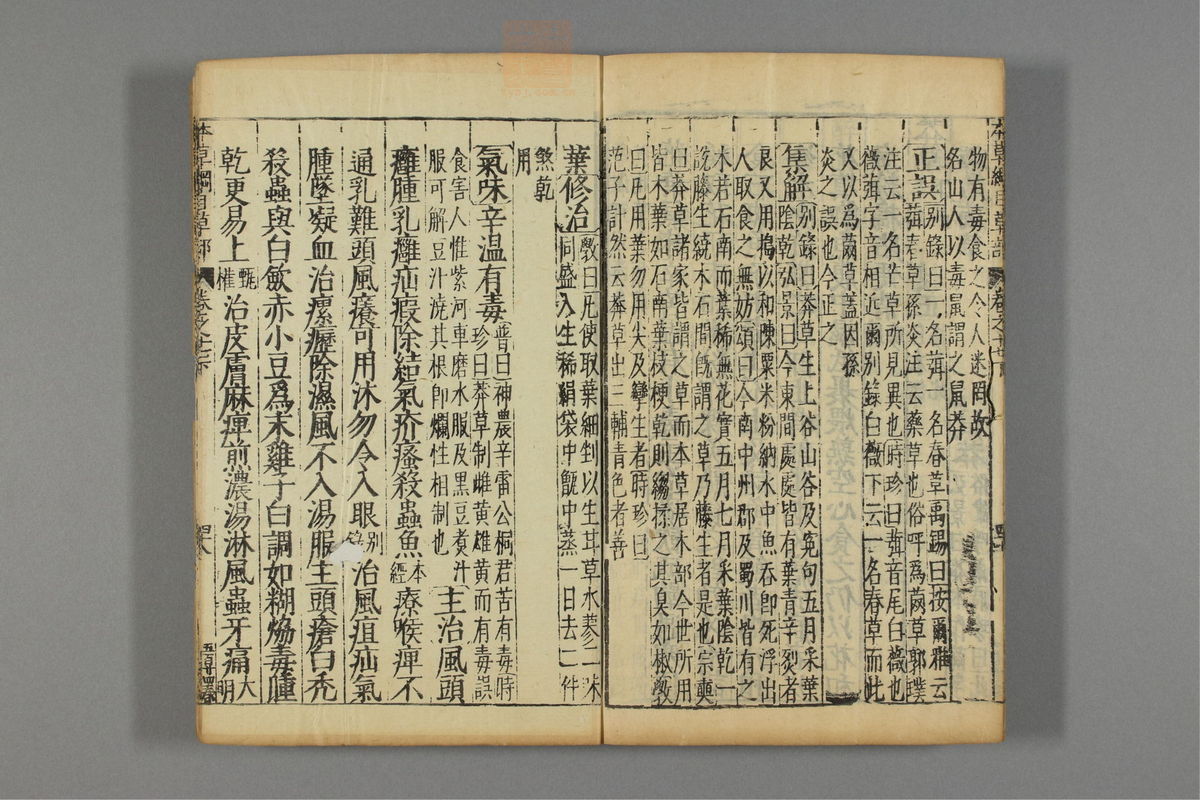 物有毒食之令人迷罔故
名山人以毒鼠謂之鼠莽
正誤别錄曰一名葞一名春草禹錫曰按爾雅云
葞春草孫炎注云藥草也俗呼爲䒽草郭璞
注云一名芒草所見異也時珍曰葞音尾白薇也
薇葞字音相近爾别錄白薇下云一名春草而此
又以爲䒽草蓋因孫
炎之誤也今正之
集解别錄曰莽草生上谷山谷及寃句五月采葉
陰乾弘景曰今東間處處皆有葉青辛烈者
良又用搗以和陳粟米粉納水中魚吞即死浮出
人取食之無妨頌曰今南中州郡及蜀川皆有之
木若石南而葉稀無花實五月七月采葉陰乾一
說藤生繞木石間既謂之草乃藤生者是也宗奭
曰莽草諸家皆謂之草而本草居木部今世所用
皆木葉如石南葉枝梗乾則縐揉之其臭如椒斆
曰凡用葉勿用尖及攣生者時珍曰
范子計然云莽草出三輔青色者善
葉修治斆曰凡使取葉細剉以生甘草水蓼二味
同盛入生稀絹袋中甑中蒸一日去二件
煞乾
用
氣味辛溫有毒普曰神農辛雷公桐君苦有毒時
珍曰莽草制雌黄雄黄而有毒誤
食害人惟紫河車磨水服及黑豆煮汁
服可解豆汁澆其根即爛性相制也主治風頭
癰腫乳癰疝瘕除結氣疥瘙殺蟲魚本經療喉痺不
通乳難頭風癢可用沐勿令入眼别錄治風疽疝氣
腫墜凝血治瘰癧除濕風不入湯服主頭瘡白禿
殺蟲與白歛赤小豆爲末雞子白調如糊爁毒腫
乾更易上甄權治皮膚麻痺煎濃湯淋風蟲牙痛大明
本草綱目草部